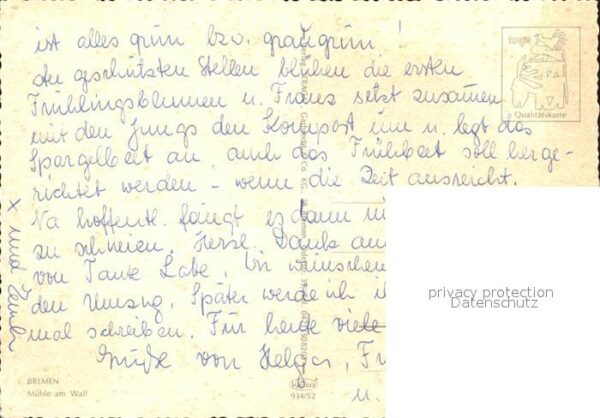 ist alles grün bzw. graugrün!
An geschützten Stellen blühen die ersten
Frühlingsblumen u. Franz setzt zusammen
mit den Jungs den Kompost um u. legt das
Spargelbeet an, auch das Frühbeet soll herge-
richtet werden – wenn die Zeit ausreicht.
Na hoffentl. fängt es dann
zu schneien. Herzl. Dank
von Tante
den Umzug. Später werde ich
mal schreiben. Für heute viele
Grüße von Helga,
u.
x und
Qualitätskarte
BREMEN
Mühle am Wall
934/52
privacy protection
Datenschutz